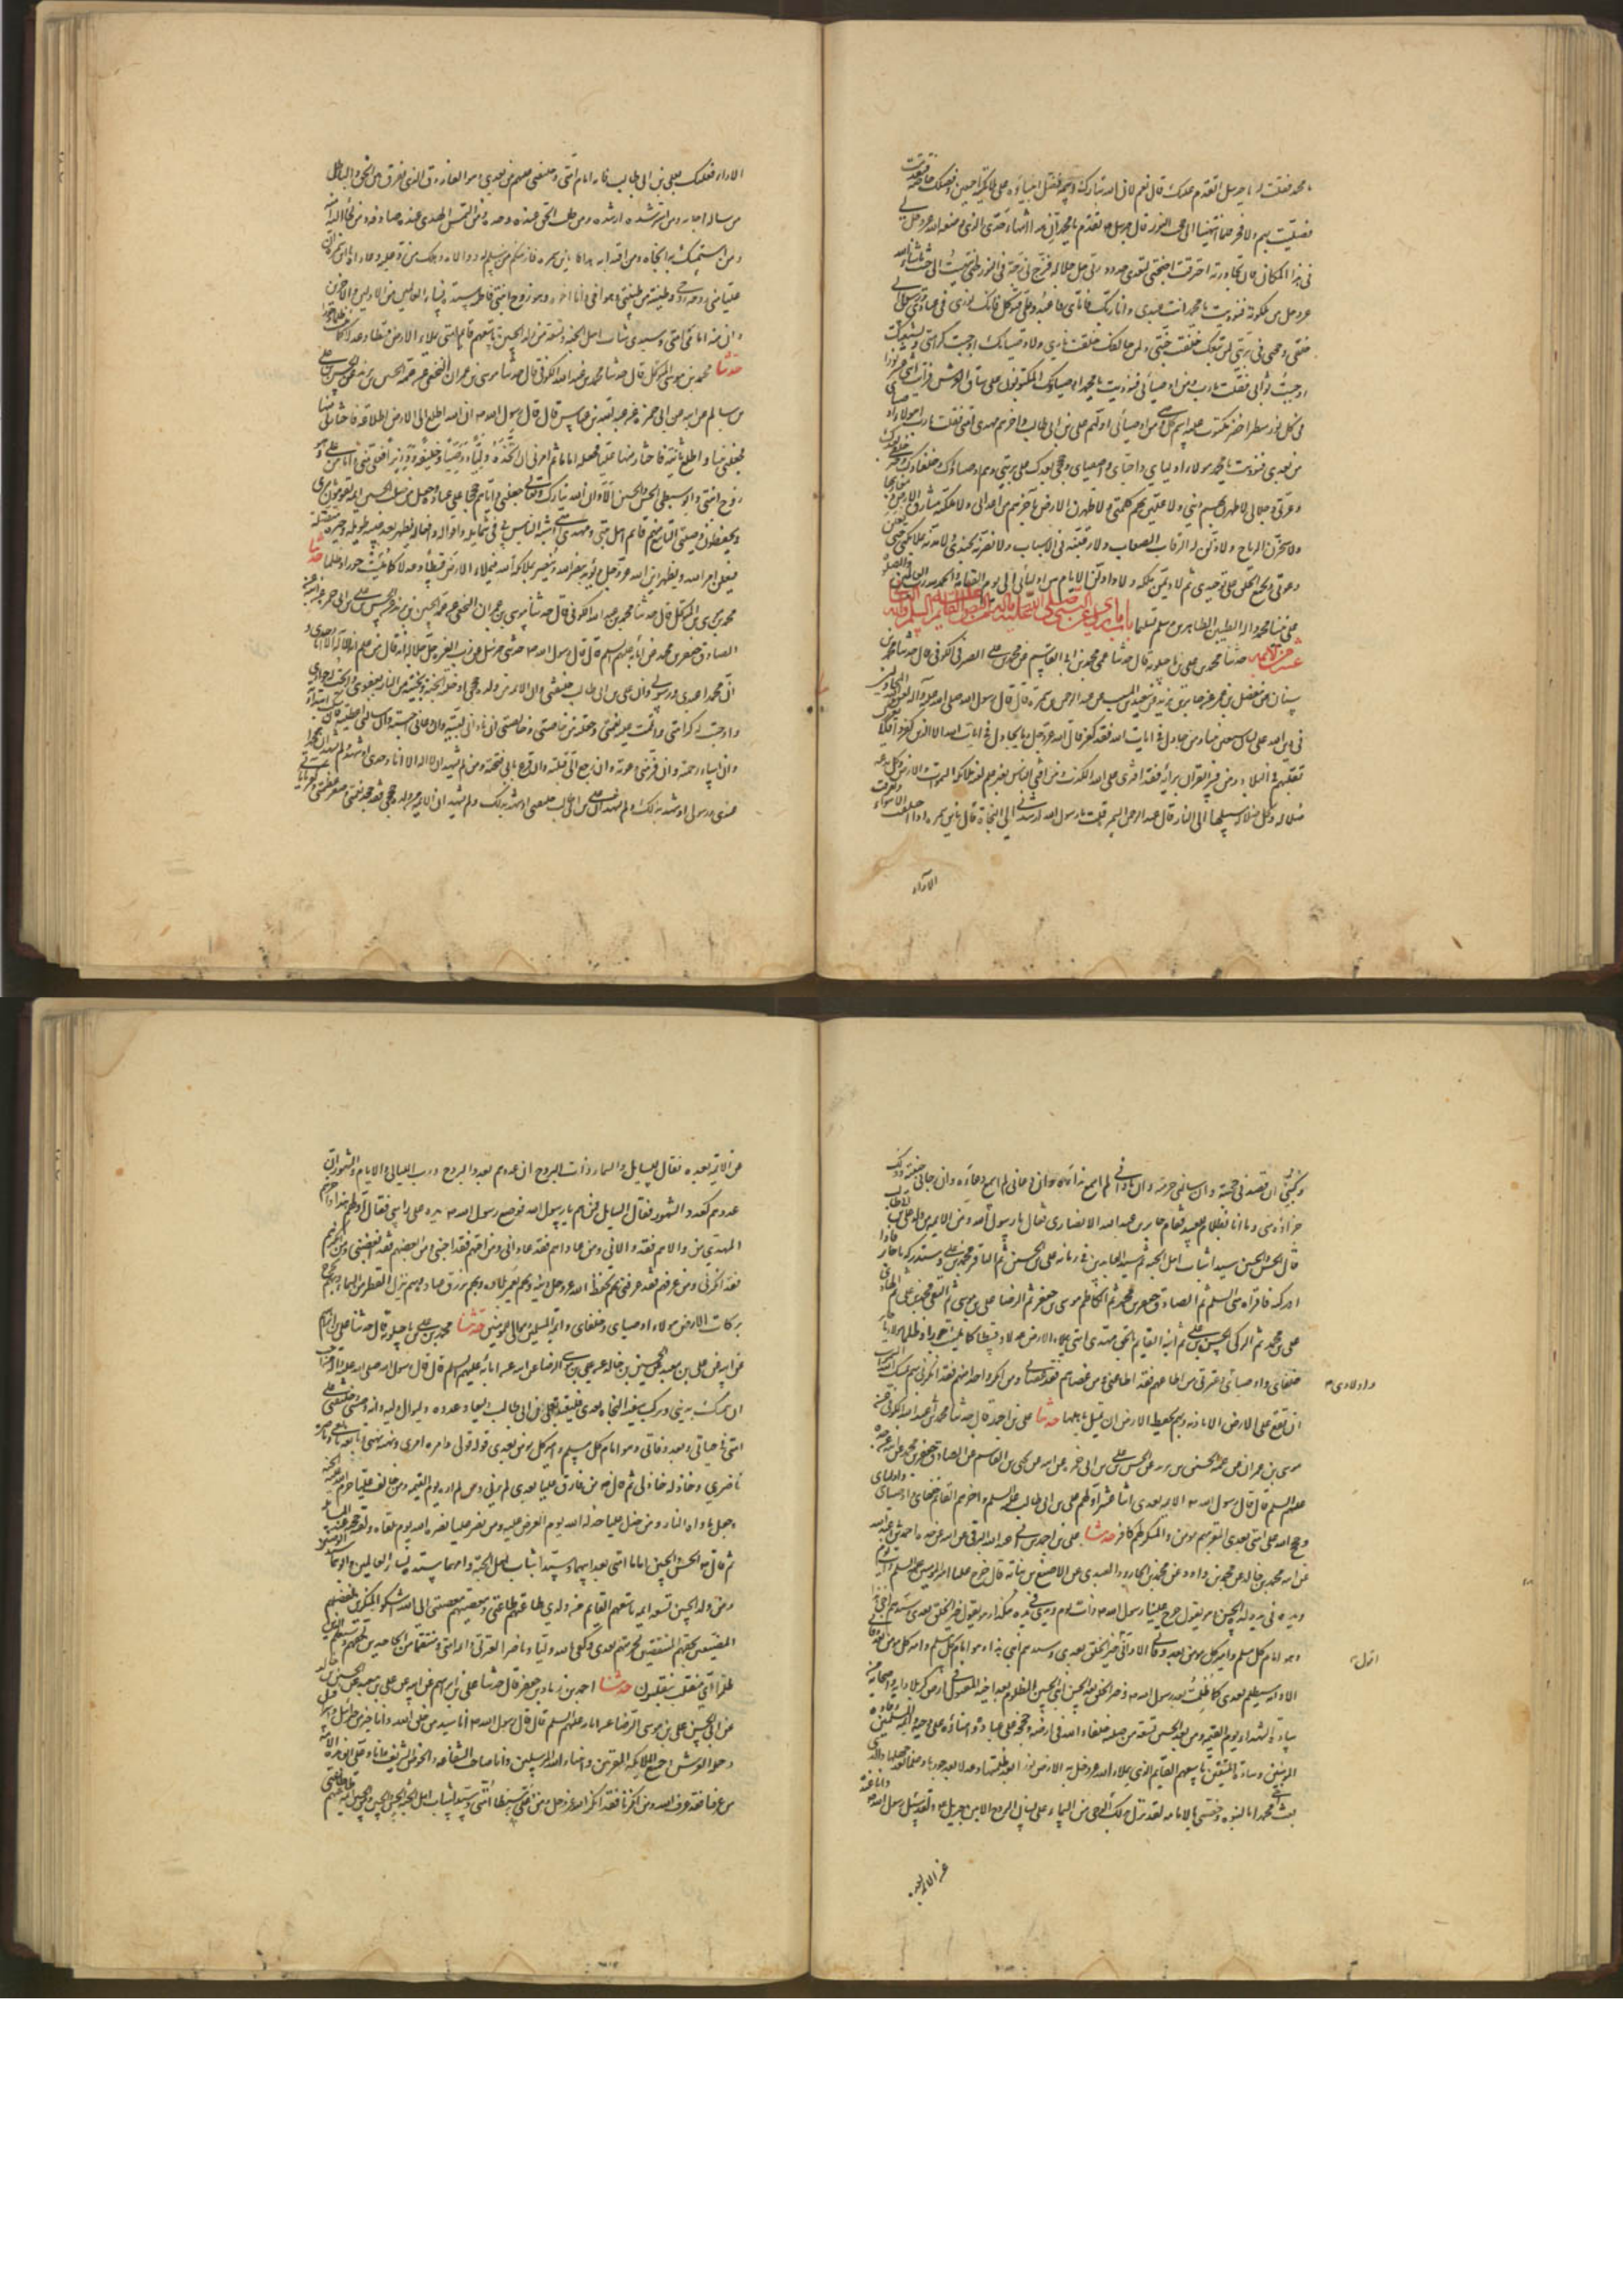 يا محمد فقلت له يا جبرئيل اتقدم عليك قال نعم لان الله تبارك وتعالى فضل انبياءه على ملائكته اجمعين وفضلك خاصة فتقدمت
فصليت بهم ولا فخر فلما انتهينا الى حجب النور قال جبرئيل تقدم يا محمد ان هذا انتهاء حدي الذي وضعه الله عز وجل لي
في هذا المكان فان تجاوزته احترقت اجنحتي لتعدي حدود ربي جل جلاله فزج بي زجة في النور حتى انتهيت الى حيث ما شاء الله
عز وجل من ملكوته فنوديت يا محمد انت عبدي وانا ربك فاياي فاعبد وعلي فتوكل فانك نوري في عبادي ورسولي الى
خلقي وحجتي في بريتي لمن تبعك خلقت جنتي ولمن خالفك خلقت ناري ولاوصيائك اوجبت كرامتي ولشيعتك
اوجبت ثوابي فقلت يا رب ومن اوصيائي فنوديت يا محمد اوصياؤك المكتوبون على ساق العرش فرايت اثني عشر نورا
في كل نور سطر اخضر مكتوب عليه اسم كل وصي من اوصيائي اولهم علي بن ابي طالب واخرهم مهدي امتي فقلت يا رب اهؤلاء اوصيائي
من بعدي فنوديت يا محمد هؤلاء اوليائي واحبائي واصفيائي وحججي بعدك على بريتي وهم اوصياؤك وخلفاؤك
وعزتي وجلالي لاظهرن بهم ديني ولاعلين بهم كلمتي ولاطهرن الارض باخرهم من اعدائي ولاملكنه مشارق الارض ومغاربها
ولاسخرن له الرياح ولاذللن له الرقاب الصعاب ولارقينه في الاسباب ولانصرنه بجندي ولامدنه بملائكتي حتى يعلن
دعوتي ويجمع الخلق على توحيدي ثم لاديمن ملكه ولاداولن الايام بين اوليائي الى يوم القيمة والحمد لله رب العالمين والصلوة
على نبينا محمد واله الطيبين الطاهرين وسلم تسليما باب ما روي عن النبي صلى الله عليه واله في النص على القائم عليه السلم وانه
عشر من الائمة حدثنا محمد بن علي ماجيلويه قال حدثنا عمي محمد بن ابي القاسم عن محمد بن علي الصيرفي الكوفي قال حدثنا محمد بن
سنان عن مفضل بن عمر عن جابر بن يزيد عن سعيد بن المسيب عن عبد الرحمن بن سمرة قال قال رسول الله صلى الله عليه وآله لعن المجادلون
في دين الله على لسان سبعين نبيا ومن جادل في ايات الله فقد كفر قال الله عز وجل ما يجادل في ايات الله الا الذين كفروا فلا يغررك
تقلبهم في البلاد ومن فسر القران برأيه فقد افترى على الله الكذب ومن افتى الناس بغير علم لعنته ملائكة السموات والارض وكل بدعة
ضلالة وكل ضلالة سبيلها الى النار قال عبد الرحمن بن سمرة قلت يا رسول الله ارشدني الى النجاة قال يا بن سمرة اذا اختلفت الاهواء وتفرقت
الآراء
الآراء فعليك بعلي بن ابي طالب فانه امام امتي وخليفتي عليهم من بعدي وهو الفاروق الذي يفرق بين الحق والباطل
من ساله اجابه ومن استرشده ارشده ومن طلب الحق عنده وجده ومن التمس الهدى عنده صادفه ومن لجأ اليه آمنه
ومن استمسك به انجاه ومن اقتدى به هداه يا بن سمرة سلم منكم من سلم له ووالاه وهلك من رد عليه وعاداه يا بن سمرة ان
عليا مني روحه من روحي وطينته من طينتي وهو اخي وانا اخوه وهو زوج ابنتي فاطمة سيدة نساء العالمين من الاولين والاخرين
وان منه امامي امتي وسيدي شباب اهل الجنة وتسعة من ولد الحسين تاسعهم قائم امتي يملاء الارض قسطا وعدلا كما ملئت ظلما وجورا
حدثنا محمد بن موسى المتوكل قال حدثنا محمد بن ابي عبد الله الكوفي قال حدثنا موسى بن عمران النخعي عن عمه الحسين بن يزيد عن الحسن بن علي
بن سالم عن ابيه عن ابي حمزة عن عبد الله بن عباس قال قال رسول الله ص ان الله اطلع الى الارض اطلاعة فاختارني منها
فجعلني نبيا ثم اطلع ثانية فاختار منها عليا فجعله اماما ثم امرني ان اتخذه اخا وليا ووصيا وخليفة ووزيرا فعلي مني وانا من علي وهو
زوج ابنتي وابو سبطي الحسن والحسين الا وان الله تبارك وتعالى جعلني واياهم حججا على عباده وجعل من صلب الحسين ائمة يقومون بامري
ويحفظون وصيتي التاسع منهم قائم اهل بيتي ومهدي امتي اشبه الناس بي في شمائله واقواله وافعاله يظهر بعد غيبة طويلة وحيرة مضلة
فيعلن امر الله ويظهر دين الله عز وجل يؤيد بنصر الله وينصر بملائكة الله فيملاء الارض قسطا وعدلا كما ملئت جورا وظلما حدثنا
محمد بن موسى بن المتوكل قال حدثنا محمد بن ابي عبد الله الكوفي قال حدثنا موسى بن عمران النخعي عن عمه الحسين بن يزيد عن الحسن بن علي بن ابي حمزة عن ابيه عن
الصادق جعفر بن محمد عن ابائه عليهم السلم قال قال رسول الله ص حدثني جبرئيل عن رب العزة جل جلاله انه قال من علم ان لا اله الا انا وحدي و
ان محمدا عبدي ورسولي وان علي بن ابي طالب خليفتي وان الائمة من ولده حججي ادخله الجنة برحمتي ونجيته من النار بعفوي وابحت له جواري
واوجبت له كرامتي واتممت عليه نعمتي وجعلته من خاصتي وخالصتي ان ناداني لبيته وان دعاني اجبته وان سالني اعطيته وان سكت ابتداته
وان اساء رحمته وان فر مني دعوته وان رجع الي قبلته وان قرع بابي فتحته ومن لم يشهد ان لا اله الا انا وحدي او شهد ولم يشهد ان محمدا
عبدي ورسولي او شهد بذلك ولم يشهد ان علي بن ابي طالب خليفتي او شهد بذلك ولم يشهد ان الائمة من ولده حججي فقد جحد نعمتي وصغر عظمتي وكفر باياتي
وكتبي ان قصدني حجبته وان سالني حرمته وان ناداني لم اسمع نداءه وان دعاني لم اسمع دعاءه وان رجاني خيبته وذلك
جزاؤه مني وما انا بظلام للعبيد فقام جابر بن عبد الله الانصاري فقال يا رسول الله ومن الائمة من ولد علي بن ابي طالب
قال الحسن والحسين سيدا شباب اهل الجنة ثم سيد العابدين في زمانه علي بن الحسين ثم الباقر محمد بن علي وستدركه يا جابر فاذا
ادركته فاقرأه مني السلم ثم الصادق جعفر بن محمد ثم الكاظم موسى بن جعفر ثم الرضا علي بن موسى ثم التقي محمد بن علي ثم النقي
علي بن محمد ثم الزكي الحسن بن علي ثم ابنه القائم بالحق مهدي امتي يملاء الارض قسطا وعدلا كما ملئت جورا وظلما هؤلاء يا جابر
خلفائي واوصيائي وعترتي من اطاعهم فقد اطاعني ومن عصاهم فقد عصاني ومن انكر واحدا منهم فقد انكرني بهم يمسك الله السماء
واولادي
ان تقع على الارض الا باذنه وبهم يحفظ الارض ان تميد باهلها حدثنا علي بن احمد قال حدثنا محمد بن ابي عبد الله الكوفي عن
موسى بن عمران عن عمه الحسين بن يزيد عن الحسن بن علي بن ابي حمزة عن ابيه عن يحيى بن ابي القاسم عن الصادق جعفر بن محمد عن ابيه عن جده
عليهم السلم قال قال رسول الله ص الائمة بعدي اثنا عشر اولهم علي بن ابي طالب عليه السلم واخرهم القائم خلفائي واوصيائي واوليائي
وحجج الله على امتي بعدي المقر بهم مؤمن والمنكر لهم كافر حدثنا علي بن احمد بن عبد الله البرقي عن ابيه عن جده احمد بن ابي عبد الله
عن ابيه محمد بن خالد عن محمد بن داود عن محمد بن الجارود العبدي عن الاصبغ بن نباتة قال خرج علينا امير المؤمنين عليه السلم ذات يوم
ويده في يد ولده الحسن وهو يقول خرج علينا رسول الله ص ذات يوم ويدي في يده هكذا وهو يقول خير الخلق بعدي وسيدهم اخي هذا
وهو امام كل مسلم وامير كل مؤمن بعد وفاتي الا واني اقول خير الخلق بعدي وسيدهم ابني هذا وهو امام كل مسلم وامير كل مؤمن بعد وفاتي
اقول
الا وانه سيظلم بعدي كما ظلمت بعد رسول الله ص وخير الخلق بعد الحسن ابني الحسين المظلوم بعد اخيه المقتول في ارض كربلا اما انه واصحابه من
سادة الشهداء يوم القيمة ومن بعد الحسين تسعة من صلبه خلفاء الله في ارضه وحججه على عباده وامناؤه على وحيه وائمة المسلمين وقادة
المؤمنين وسادة المتقين تاسعهم القائم الذي يملاء الله عز وجل به الارض نورا بعد ظلمتها وعدلا بعد جورها وعلما بعد جهلها والذي
بعث محمدا بالنبوة وخصني بالامامة لقد نزل بذلك الوحي من السماء على لسان الروح الامين جبريل ولقد سئل رسول الله ص وانا عنده
عن الائمة بعده
عن الائمة بعده فقال للسائل والسماء ذات البروج ان عددهم بعدد البروج ورب الليالي والايام والشهور ان
عددهم كعدد الشهور فقال السائل فمن هم يا رسول الله فوضع رسول الله ص يده على راسي فقال اولهم هذا واخرهم
المهدي من والاهم فقد والاني ومن عاداهم فقد عاداني ومن احبهم فقد احبني ومن ابغضهم فقد ابغضني ومن انكرهم
فقد انكرني ومن عرفهم فقد عرفني بهم يحفظ الله عز وجل دينه وبهم يعمر بلاده وبهم يرزق عباده وبهم ينزل القطر من السماء وبهم يخرج
بركات الارض هؤلاء اوصيائي وخلفائي وائمة المسلمين وموالي المؤمنين حدثنا محمد بن علي ماجيلويه قال حدثنا علي بن ابراهيم
عن ابيه عن علي بن معبد عن الحسين بن خالد عن علي بن موسى الرضا عن ابيه عن ابائه عليهم السلم قال قال رسول الله صلى الله عليه واله من احب
ان يتمسك بديني ويركب سفينة النجاة بعدي فليقتد بعلي بن ابي طالب وليعاد عدوه وليوال وليه فانه وصيي وخليفتي على
امتي في حياتي وبعد وفاتي وهو امام كل مسلم وامير كل مؤمن بعدي قوله قولي وامره امري ونهيه نهيي وتابعه تابعي وناصره
ناصري وخاذله خاذلي ثم قال ص من فارق عليا بعدي لم يرني ولم اره يوم القيمة ومن خالف عليا حرم الله عليه الجنة
وجعل ماواه النار ومن خذل عليا خذله الله يوم يعرض عليه ومن نصر عليا نصره الله يوم يلقاه ولقنه حجته عند المسائلة
ثم قال ص الحسن والحسين اماما امتي بعد ابيهما وسيدا شباب اهل الجنة وامهما سيدة نساء العالمين وابوهما سيد الوصيين
ومن ولد الحسين تسعة ائمة تاسعهم القائم من ولدي طاعتهم طاعتي ومعصيتهم معصيتي الى الله اشكو المنكرين لفضلهم
المضيعين لحقهم المنتقصين لحرمتهم بعدي وكفى بالله وليا وناصرا لعترتي وائمة امتي ومنتقما من الجاحدين لحقهم وسيعلم الذين
ظلموا اي منقلب ينقلبون حدثنا احمد بن زياد بن جعفر قال حدثنا علي بن ابراهيم عن ابيه عن علي بن معبد عن الحسين بن خالد
عن ابي الحسن علي بن موسى الرضا عن ابائه عليهم السلم قال قال رسول الله ص انا سيد من خلق الله وانا خير من جبرئيل واسرافيل
وحملة العرش وجميع الملائكة المقربين وانبياء الله المرسلين وانا صاحب الشفاعة والحوض الشريف وانا وعلي ابوا هذه الامة
من عرفنا فقد عرف الله ومن انكرنا فقد انكر الله عز وجل ومن علي سبطا امتي وسيدا شباب اهل الجنة الحسن والحسين ومن ولد الحسين ائمة تسعة طاعتهم طاعتي